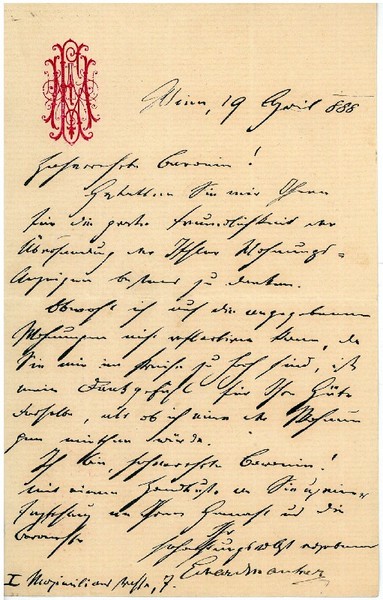 Wien, 19 April 888
Hochverehrte Baronin!
Gestatten Sie mir Ihnen
für die große Freundlichkeit der
Übersendung der Ischler Wohnungs-
Anzeigen bestens zu danken.
Obwohl ich auf die angegebenen
Wohnungen nicht reflectiren kann, da
Sie mir im Preise zu hoch sind, ist
mein Dankgefühl für Ihre Güte
dasselbe, als ob ich eine der Wohnun
gen miethen würde.
Ich bin, hochverehrte Baronin!
mit einem Handkuße an Sie u.
Empfehlung an Ihren Gemahl und die
Baronesse
Ihr
hochachtungsvollst ergebener
I Maximilianstrasse, 7.